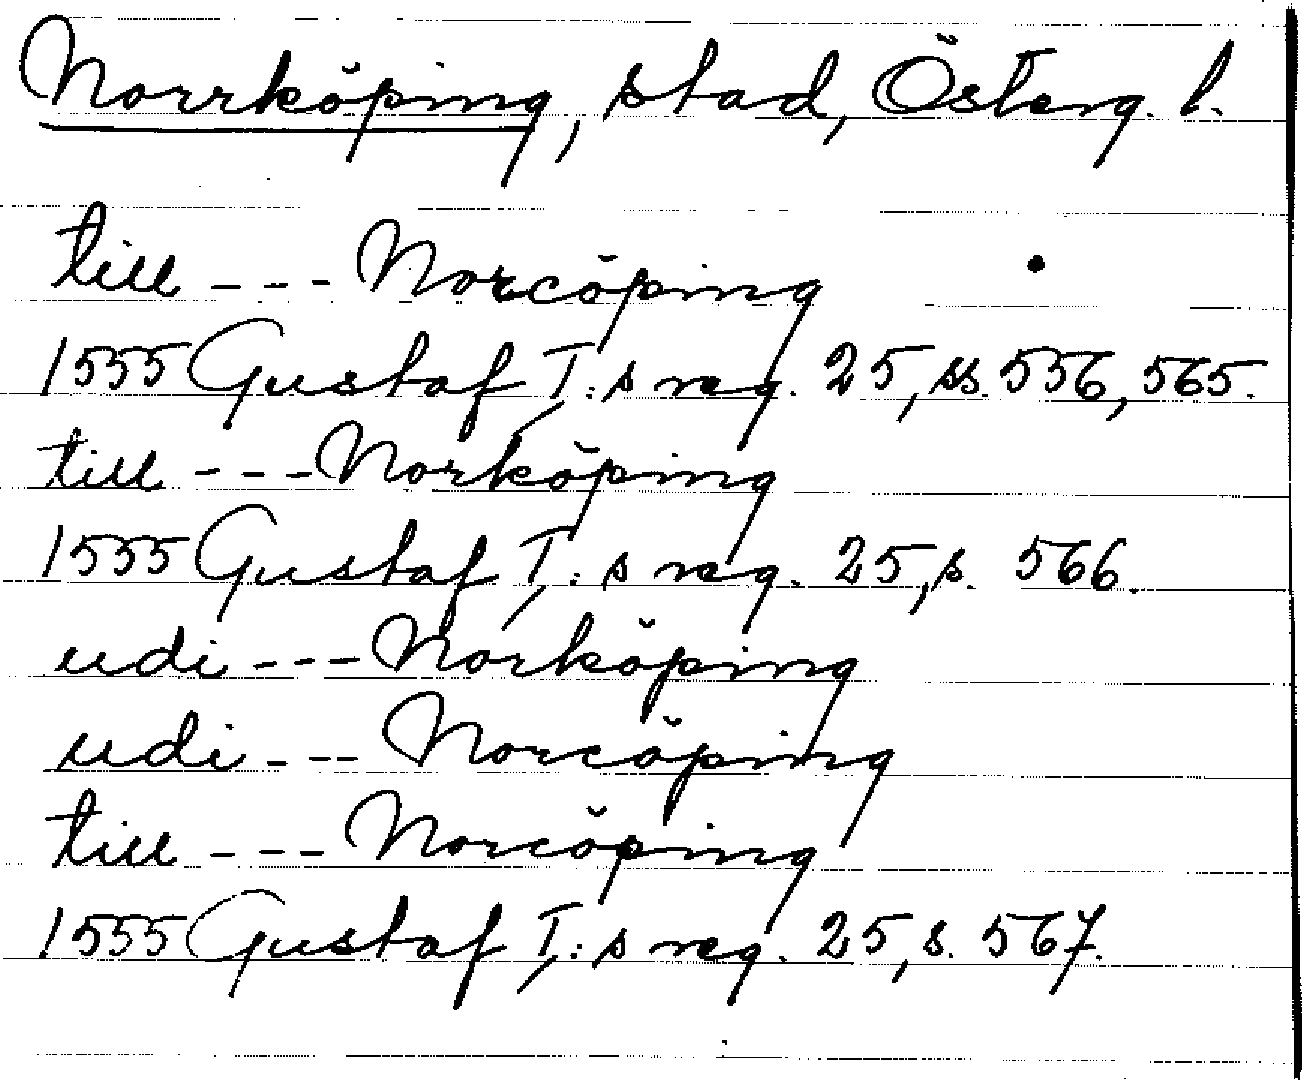 Norrköping, stad, Österg. l.
till --- Norcöping
1555 Gustaf I:s reg. 25, ss. 556, 565.
till --- Norköping
1555 Gustaf I:s reg. 25, s. 566.
udi --- Norköping
udi --- Norcöping
till --- Norcöping
1555 Gustaf I:s reg. 25, s. 567.